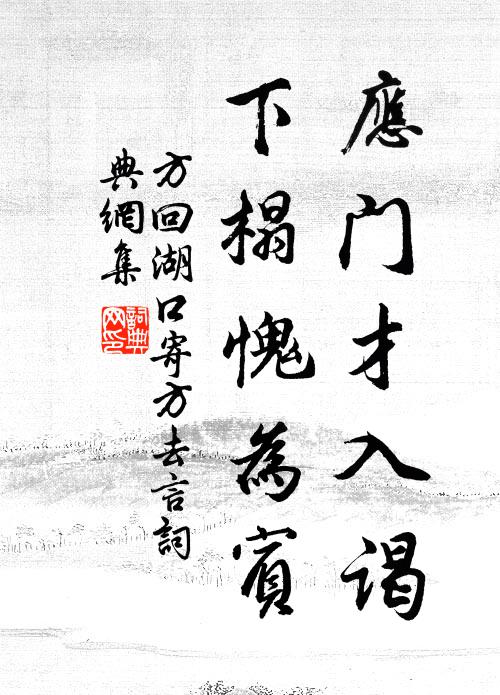 應門才入謁
下榻愧為賓
方回湖口寄方去言詞
典網集
詞典
网印